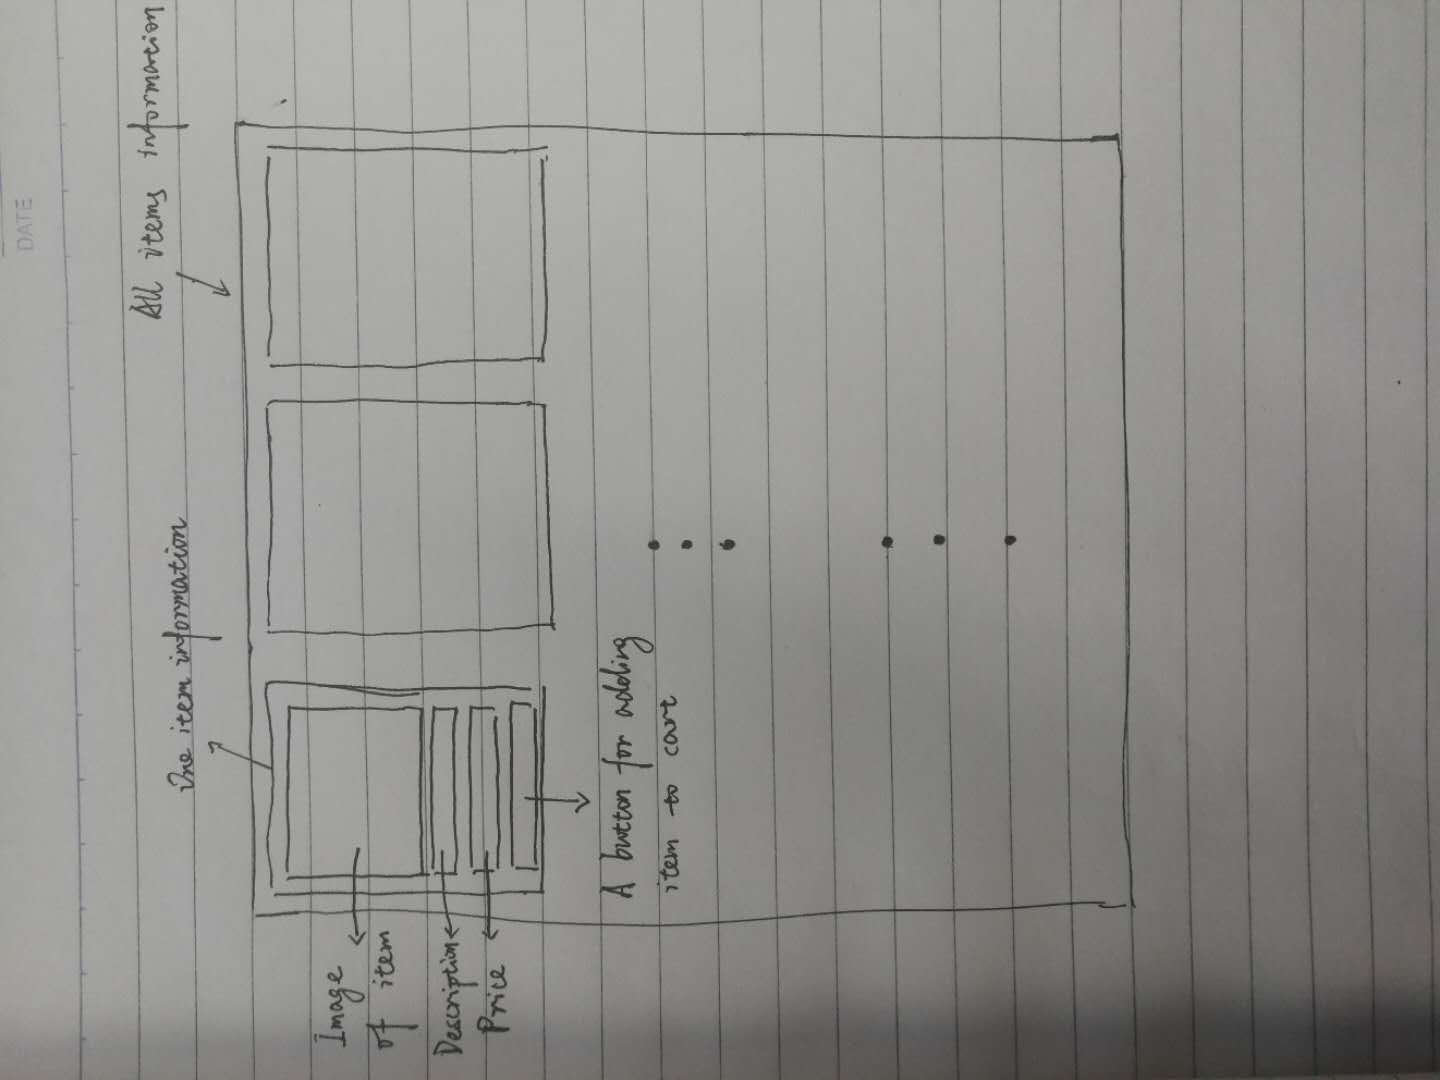 DATE
All items information
One item information
Image
of item
Description
Price
A button for adding
item to cart